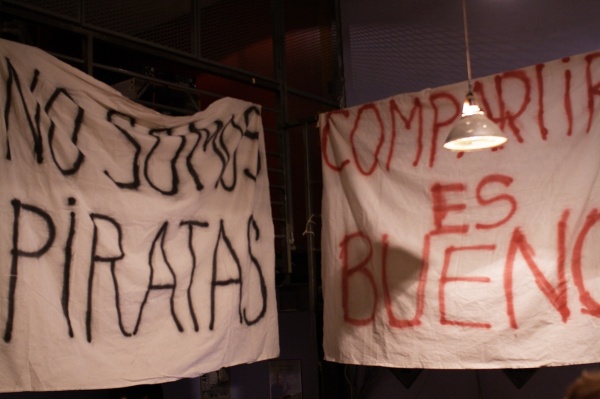 NO SOMOS
PiRATAS
COMPARTiR
ES
BUENO